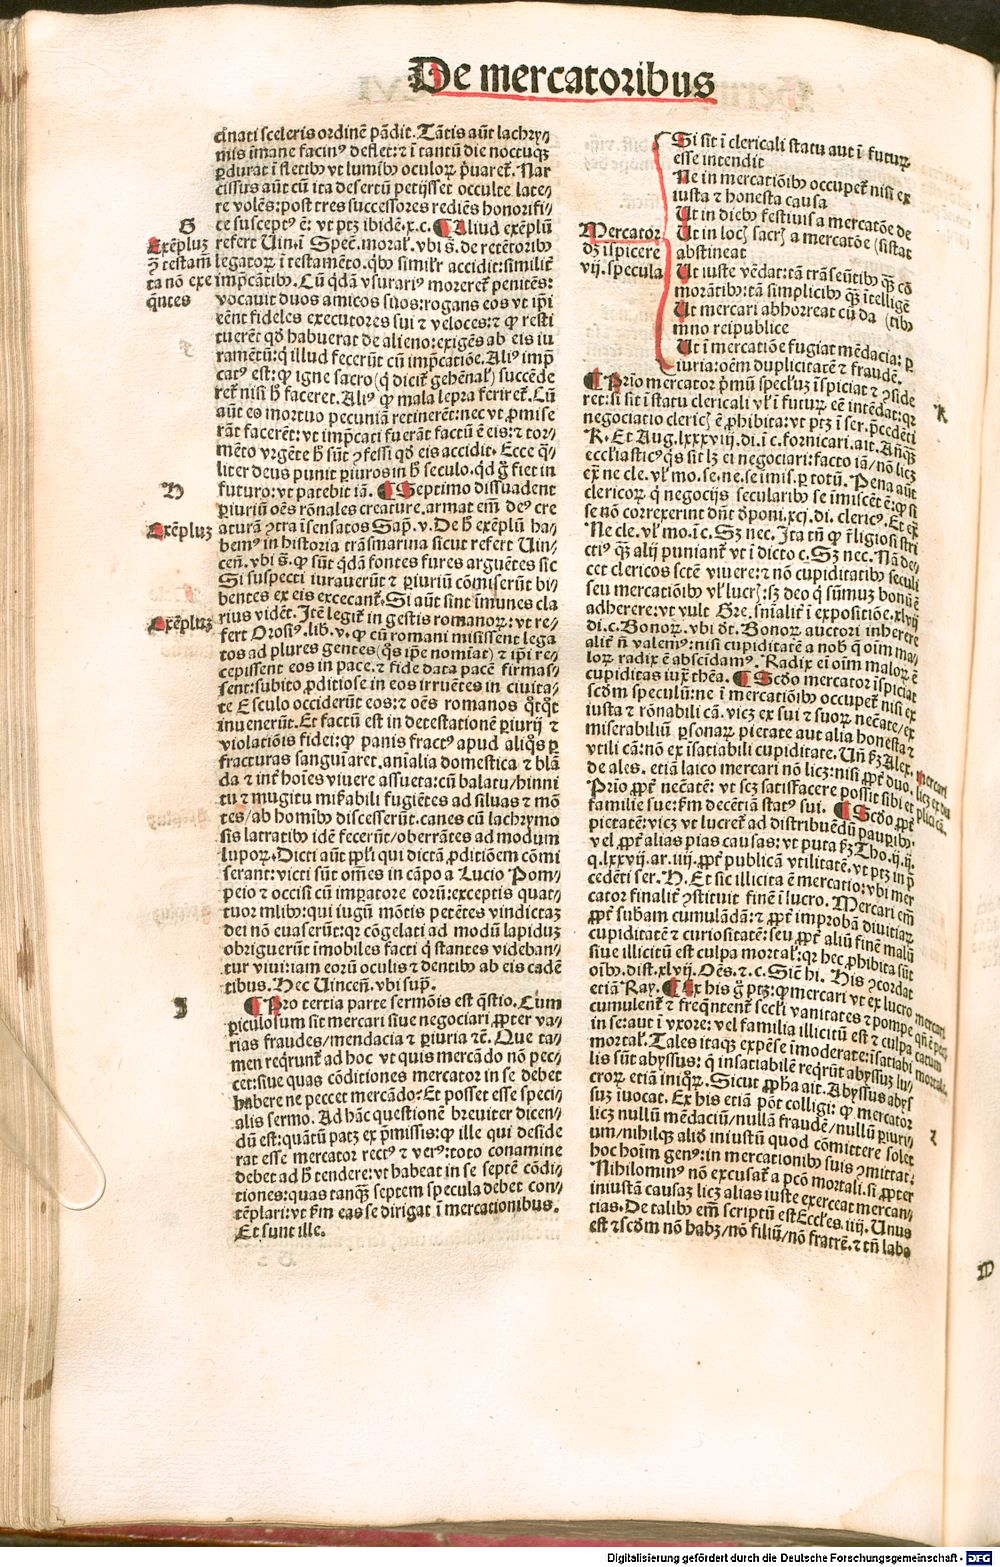 De mercatoribus
cinati sceleris ordinē pādit. Tātis aūt lachry⸗
mis īmane facinꝰ deflet: ⁊ ī tantū die noctuqꝫ
ꝑdurat ī fletibꝰ vt lumibꝰ oculoꝝ p̄uaret᷑. Nar
cissus aūt cū ita desertū petijsset occulte late⸗
re volēs: post tres successores rediēs honorifi⸗
G
ce susceptꝰ ē: vt ptꝫ ibidē.x.c. ¶ Aliud exēplū
Exēpluꝫ
refert Uin. ī Specͤ. moral᷑. vbi s̄. de retētoribꝰ
legatoꝝ ī testamēto. qͥbꝰ simil᷑r accidit: similit᷑
impcātibꝰ. Cū qͥdā vsurariꝰ moreret᷑ penitēs:
vocauit duos amicos suos: rogans eos vt ip̄i
eēnt fideles executores sui ⁊ veloces: ⁊ ꝙ resti
tuerēt qd̄ habuerat de alieno: exigēs ab eis iu
ramētū: q̄ illud fecerūt cū impcatiōe. Aliꝰ imp̄
catꝰ est: ꝙ igne sacro (q̄ dicit᷑ gehēnal᷑) succēde
ret᷑ nisi h̄ faceret. Aliꝰ ꝙ mala lepra feriret᷑. Cū
aūt eo mortuo pecuniā retinerēt: nec vt ꝓmise
rāt facerēt: vt imp̄cati fuerāt factū ē eis: ⁊ tor⸗
mēto vrgēte h̄ sūt ꝯfessi qd̄ eis accidit. Ecce q̄⸗
liter deus punit ꝑiuros in h̄ seculo. qd̄ ḡ fiet in
H
futuro: vt patebit iā. ¶ Septimo dissuadent
ꝑiuriū oēs rōnales creature. armat em̄ deꝰ cre
Exēpluꝫ
aturā ꝯtra īsensatos Sap̄. v. De h̄ exēplū ha⸗
bemꝰ in historia trāsmarina sicut refert Uin⸗
cen̄. vbi s̄. ꝙ sūt qͥdā fontes fures arguētes sic
Si suspecti iurauerūt ⁊ ꝑiuriū cōmiserūt bi⸗
bentes ex eis excecant᷑. Si aūt sint īmunes cla
rius vidēt. Itē legit᷑ in gestis romanoꝝ: vt re⸗
Exēpluꝫ
fert Orosiꝰ. lib. v. ꝙ cū romani misissent lega
tos ad plures gentes (qͦs ip̄e nomīat) ⁊ ip̄i re⸗
cepissent eos in pace. ⁊ fide data pacē firmas⸗
sent: subito ꝓditiose in eos irruētes in ciuita⸗
te Esculo occiderūt eos: ⁊ oēs romanos qͦtqͦt
inuenerūt. Et factū est in detestationē ꝑiurij ⁊
violatiōis fidei: ꝙ panis fractꝰ apud aliqͦs ꝑ
fracturas sanguīaret. aīalia domestica ⁊ blā
da ⁊ int᷑ hoīes viuere assueta: cū balatu/hinni
tu ⁊ mugitu mirabili fugiētes ad siluas ⁊ mō
tes/ab homībꝰ discesserūt. canes cū lachrymo
sis latratibꝰ idē fecerūt/oberrātes ad modum
lupoꝝ. Dicti aūt pp̄li qui dictā ꝓditiōem cōmi
serant: victi sūt om̄es in cāpo a Lucio Pom⸗
peio ⁊ occisi cū imꝑatore eorū: exceptis quat⸗
tuor mlibꝰ: qui iugū mōtis petētes vindictaꝫ
dei nō euaserūt: qꝛ cōgelati ad modū lapiduꝫ
obriguerūt īmobiles facti q̄ stantes videban⸗
tur viui: iam eorū oculis ⁊ dentibꝰ ab eis cadē
tibus. Hec Uincen̄. vbi sup̄.
J
¶ Pro tertia parte sermōis est qͥstio. Cum
ꝑiculosum sit mercari siue negociari ꝓpter va⸗
rias fraudes/mendacia ⁊ ꝑiuria ⁊c̄. Que ta⸗
men reqͥrunt᷑ ad hoc vt quis mercādo nō pec⸗
cet: siue quas cōditiones mercator in se debet
habere ne peccet mercādo? Et posset esse speci⸗
alis sermo. Ad hāc questionē breuiter dicen⸗
dū est: quātū patꝫ ex p̄missis: ꝙ ille qui deside
rat esse mercator rectꝰ ⁊ verꝰ: toto conamine
debet ad h̄ tendere: vt habeat in se septē cōdi⸗
tiones: quas tanqꝫ septem specula debet con⸗
tēplari: vt sm̄ eas se dirigat ī mercationibus.
Et sunt ille.
Mercator
dꝫ īspicere
vij. specula
Si sit ī clericali statu aut ī futuꝝ
esse intendit
Ne in mercatiōibꝰ occupet᷑ nisi ex
iusta ⁊ honesta causa
Ut in diebꝰ festiuis a mercatōe de
Ut in locꝭ sacrꝭ a mercatōe (sistat
abstineat
Ut iuste vēdat: tā trāseūtibꝰ qꝫ cō
morātibꝰ: tā simplicibꝰ qꝫ ītelligē
Ut mercari abhorreat cū da (tibꝰ
mno reipublice
Ut ī mercatiōe fugiat mēdacia: ꝑ
iuria: oēm duplicitatē ⁊ fraudē.
¶ Prīo mercator p̄mū specl᷑uꝫ īspiciat ⁊ ꝯside
K
ret: si sit ī statu clericali vl᷑ ī futuꝝ eē intēdat: qꝛ
negociatio clericꝭ ē ꝓhibita: vt ptꝫ ī ser. p̄cedēti
K. Et Aug. lxxxvij. di. ī c. fornicari. ait. Anͥqꝫ
ecclīasticꝰ qͥs sit lꝫ ei negociari: facto iā/nō licꝫ
ex̄ ne cle. vl᷑ mo. se. ne. se imis. ꝑ totū. Pena aūt
clericoꝝ q̄ negocijs secularibꝰ se īmiscēt ē: ꝙ si
se nō correxerint dn̄t dͥponi. xcj. di. clericꝰ. Et ex̄
Ne cle. vl᷑ mo. ī c. Sꝫ nec. Ita tn̄ ꝙ r̄ligiosi stri
ctiꝰ qꝫ alij puniant᷑ vt ī dicto c. Sꝫ nec. Nā de⸗
cet clericos sctē viuere: ⁊ nō cupiditatibꝰ seculi
seu mercatiōibꝰ vl᷑ lucrꝭ: sꝫ deo q̄ sūmuꝫ bonū ē
adherere: vt vult Gre. snīalit᷑ ī expositiōe. xlvij
di. c. Bonoꝝ. vbi dt̄. Bonoꝝ auctori inherere
alit᷑ n̄ valemꝰ: nisi cupiditatē a nob̄ q̄ oīm ma⸗
loꝝ radix ē abscidamꝰ. Radix ei oīm maloꝝ ē
cupiditas iux̄ thēa. ¶ Scd̄o mercator īspiciat
scd̄m speculū: ne ī mercatiōibꝰ occupet᷑ nisi ex
iusta ⁊ rōnabili cā. vicꝫ ex sui ⁊ suoꝝ nec̄ate/ex
miserabiliū ꝑsonaꝝ pietate aut alia honesta ⁊
vtili cā: nō ex īsatiabili cupiditate. Un̄ sꝫ Alex.
de ales. etiā laico mercari nō licꝫ: nisi ꝓpt᷑ duo.
Prīo ꝓpt᷑ nec̄atē: vt scꝫ satisfacere possit sibi et
familie sue: sm̄ decētiā statꝰ sui. ¶ Scd̄o ꝓpt᷑
pietatē: vicꝫ vt lucret᷑ ad distribuēdū pauꝑibꝰ.
vel ꝓpt᷑ alias pias causas: vt puta sꝫ Tho. ij. ij.
q. lxxvij. ar. iiij. ꝓpt᷑ publicā vtilitatē. vt ptꝫ in p̄
cedēti ser. H. Et sic illicita ē mercatio: vbi mer
cator finalit᷑ ꝯstituit finē ī lucro. Mercari em̄
ꝓpt᷑ subam cumulādā: ⁊ ꝓpt᷑ improbā diuitiaꝝ
cupiditatē ⁊ curiositatē: seu ꝓpt᷑ aliū finē malū
siue illicitū est culpa mortal᷑: qꝛ hec ꝓhibita sūt
oībꝰ. dist. xlvij. Oēs. ⁊ c. Siē hi. His ꝯcordat
etiā Ray. ¶ Ex his ḡ ptꝫ: ꝙ mercari vt ex lucro
cumulent᷑ ⁊ freqͥntent᷑ secl᷑i vanitates ⁊ pompe
in se: aut ī vxore: vel familia illicitū est ⁊ culpa
mortal᷑. Tales itaqꝫ expēse īmoderate: īsatiabi
lis sūt abyssus: q̄ insatiabilē reqͥrūt abyssuꝫ lu⸗
croꝝ etiā iniqͦꝝ. Sicut ꝓph̄a ait. Abyssus abys
suꝫ īuocat. Ex his etiā pōt colligi: ꝙ mercator
licꝫ nullū mēdaciū/nullā fraudē/nullū ꝑiuri⸗
L
um/nihilqꝫ aliō iniustū quod cōmittere solet
hoc hoīm genꝰ: in mercationibꝰ suis ꝯmittat:
Nihilominꝰ nō excusat᷑ a pctō mortali. si ꝓpter
iniustā causaꝫ licꝫ alias iuste exerceat mercan⸗
tias. De talibꝰ em̄ scriptū est Eccl᷑es. iiij. Unus
est ⁊ scd̄m nō habꝫ/nō filiū/nō fratrē. ⁊ tn̄ labo
M
Digitalisierung gefördert durch die Deutsche Forschungsgemeinschaft - DFG